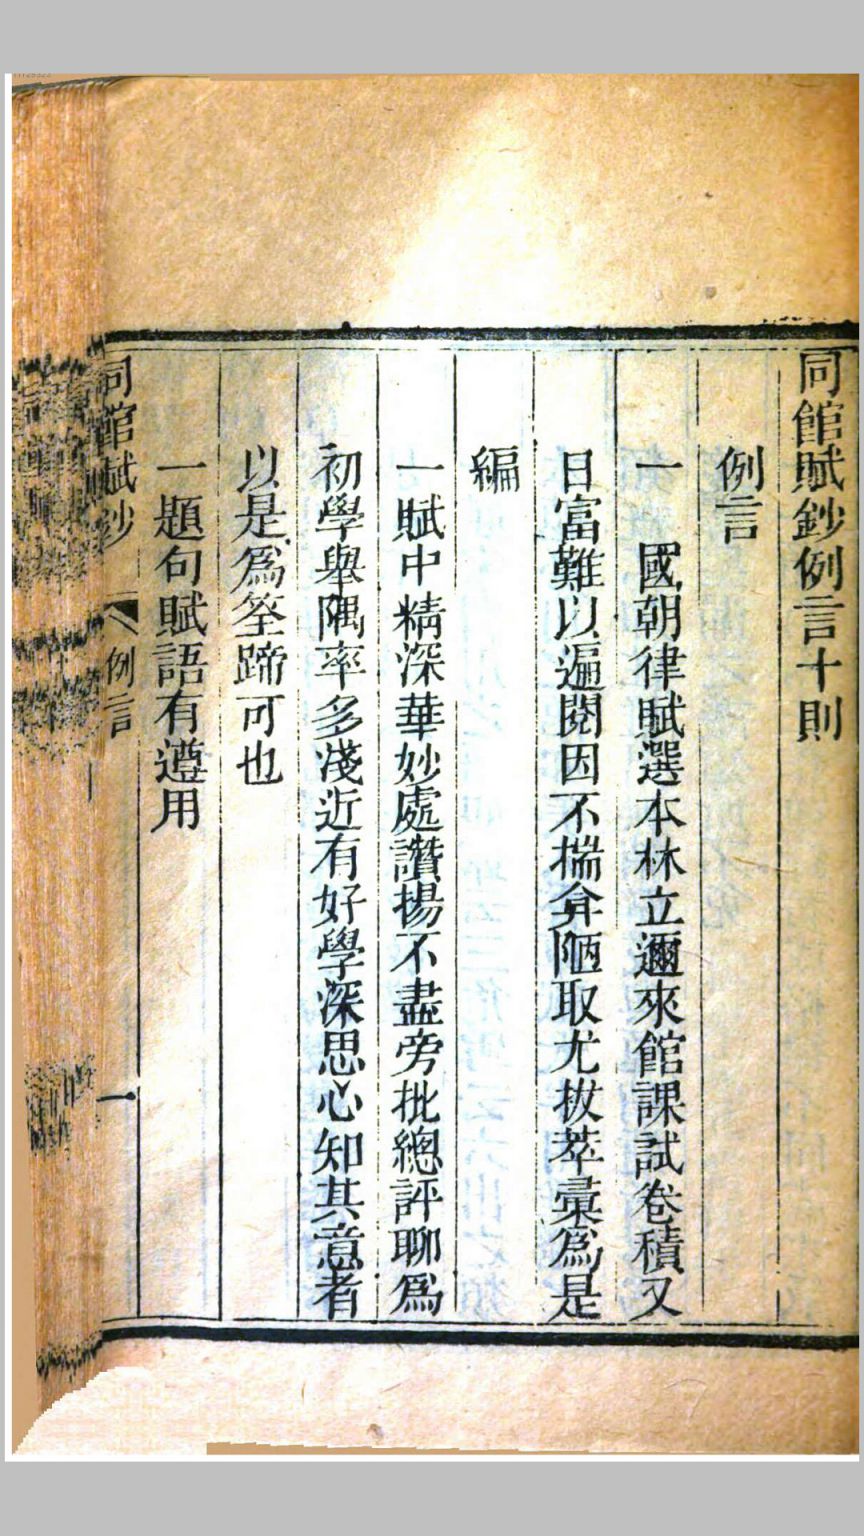 同館賦鈔例言十則
例言
一　國朝律賦選本林立邇來館課試卷積又
日富難以遍閱因不揣弇陋取尤拔萃彙爲是
編
一賦中精深華妙處讚揚不盡旁批總評聊爲
初學舉隅率多淺近有好學深思心知其意者
以是爲筌蹄可也
一題句賦語有遵用
同館賦鈔
例言
一